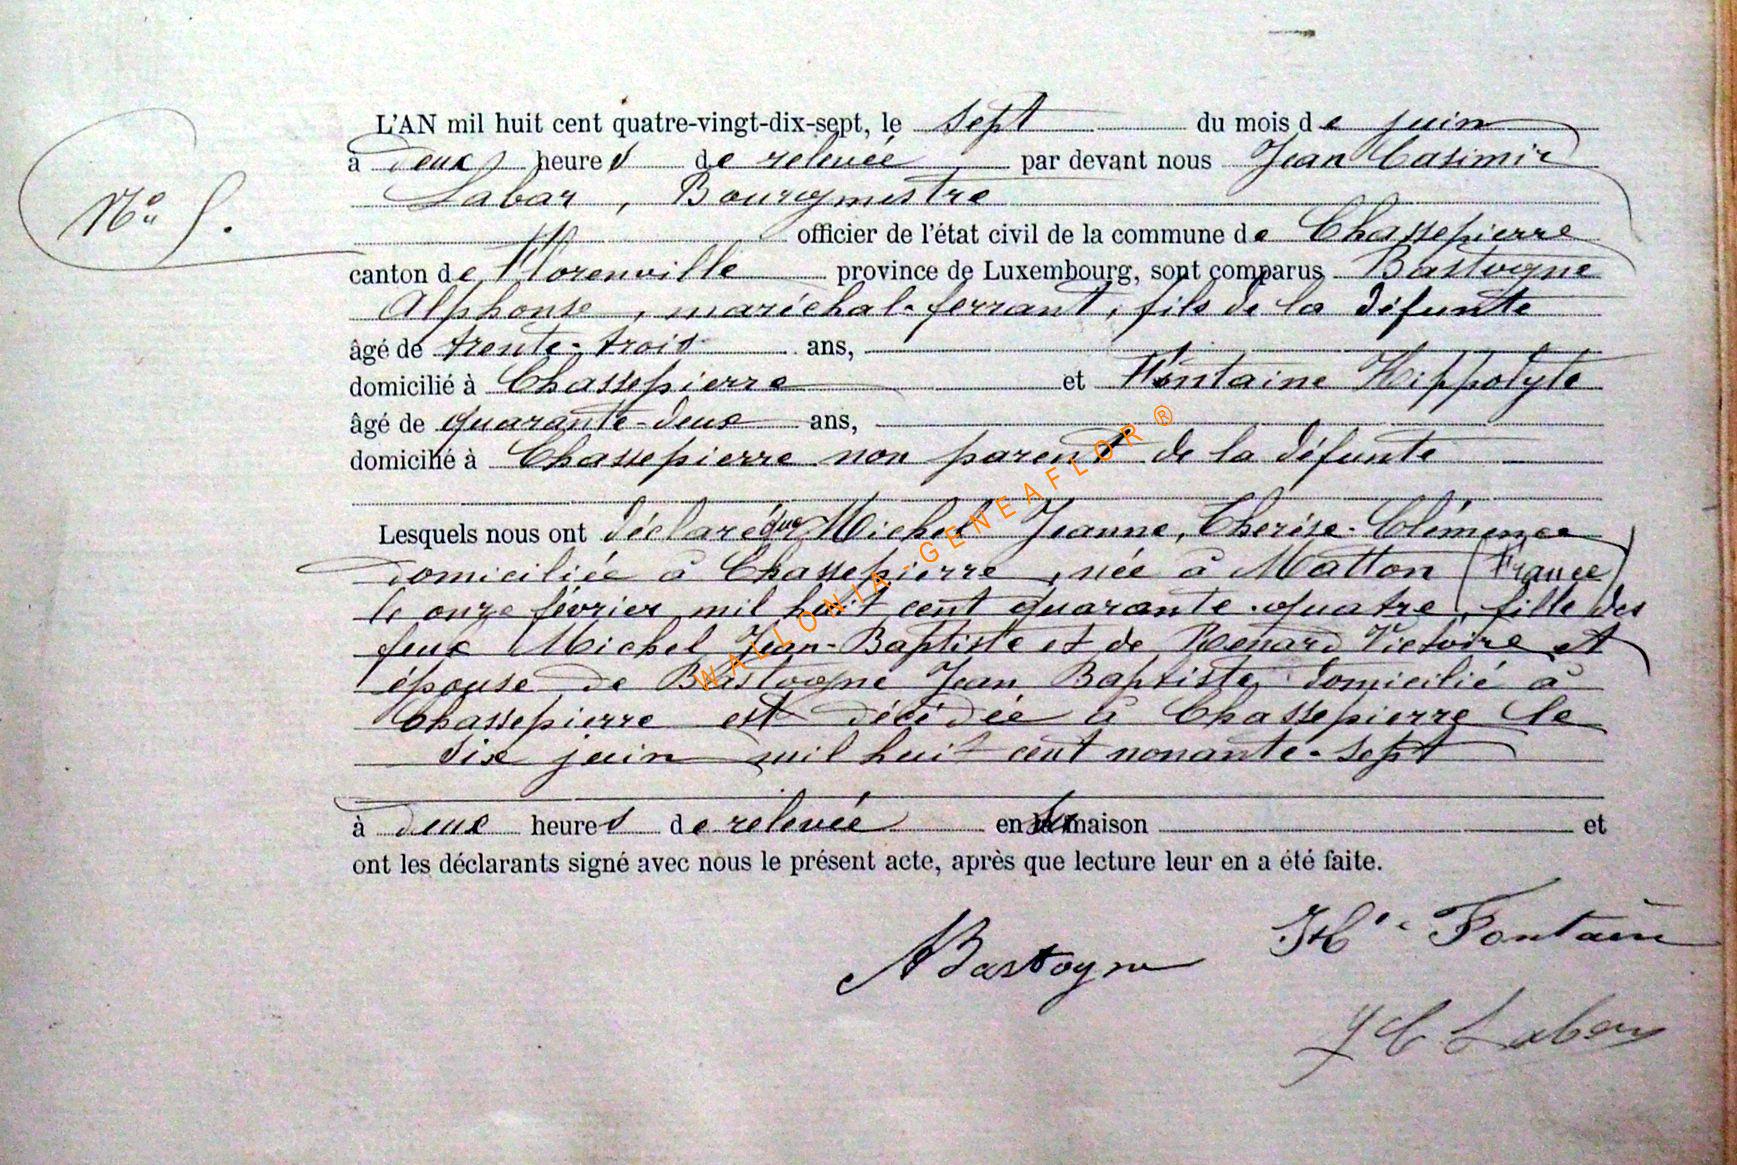 L'AN mil huit cent quatre-vingt-dix-sept, le sept du mois de juin
à deux heures de relevée par devant nous Jean Casimir
Labar, Bourgmestre
officier de l'état civil de la commune de Chassepierre
canton de Florenville province de Luxembourg, sont comparus Bastogne
Alphonse, maréchal-ferrant, fils de la défunte
âgé de trente-trois ans,
domicilié à Chassepierre et Fontaine Hippolyte
âgé de quarante-deux ans,
domicilié à Chassepierre non parent de la défunte
Lesquels nous ont déclaré que Michel Jeanne, Thérèse-Clémence
domiciliée à Chassepierre, née à Matton (France)
le onze février mil huit cent quarante-quatre, fille des
feux Michel Jean-Baptiste et de Renard Victoire et
épouse de Bastogne Jean Baptiste domicilié à
Chassepierre est décédée à Chassepierre le
six juin mil huit cent nonante-sept
à deux heures de relevée en sa maison et
ont les déclarants signé avec nous le présent acte, après que lecture leur en a été faite.
ABastogne
Hte Fontaine
J C Labar
WALLONIA-GENEAFLOR ®